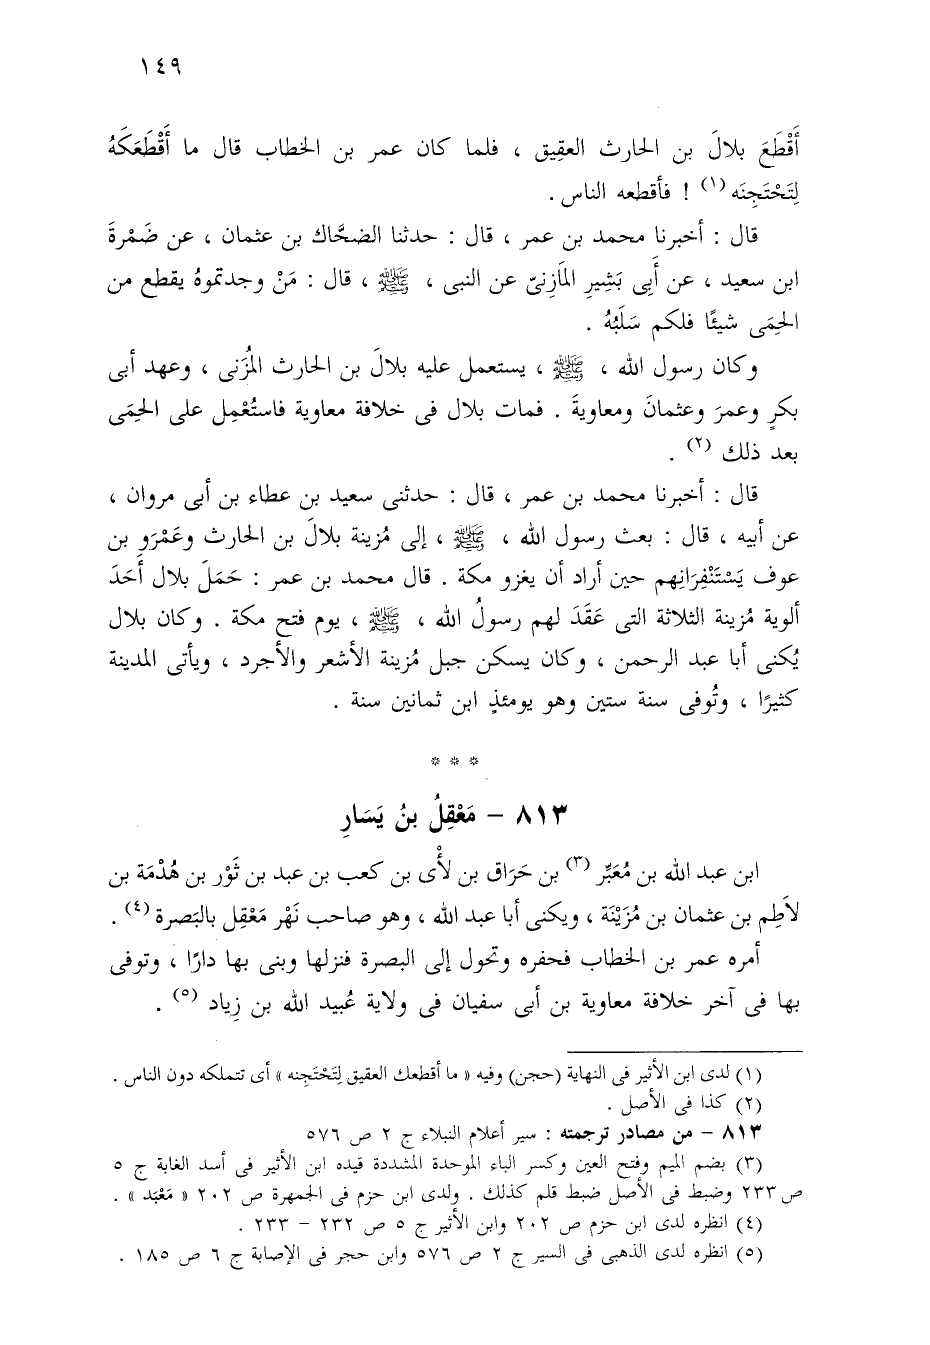 ١٤٩
أَقْطَعَ بلالَ بن الحارث العقِيق ، فلما كان عمر بن الخطاب قال ما أَقْطَعَكَهُ
لِتَحْتَجِنَه (١) ! فأقطعه الناس .
قال : أخبرنا محمد بن عمر ، قال : حدثنا الضحَّاك بن عثمان ، عن ضَمْرةَ
ابن سعيد ، عن أَبِى بَشِيرِ المَازِنىّ عن النبى ، ﷺ ، قال : مَنْ وجدتموهُ يقطع من
الحِمَى شيئًا فلكم سَلَبُهُ .
وكان رسول الله ، ﷺ ، يستعمل عليه بلالَ بن الحارث المُزَنى ، وعهد أبى
بكرٍ وعمرَ وعثمانَ ومعاويةَ . فمات بلال فى خلافة معاوية فاستُعْمِل على الحِمَى
بعد ذلك (٢) .
قال : أخبرنا محمد بن عمر ، قال : حدثنى سعيد بن عطاء بن أبى مروان ،
عن أبيه ، قال : بعث رسول الله ، ﷺ ، إلى مُزينة بلالَ بن الحارث وعَمْرَو بن
عوف يَسْتَنْفِرَانِهم حين أراد أن يغزو مكة . قال محمد بن عمر : حَمَلَ بلال أَحَدَ
ألوية مُزينة الثلاثة التى عَقَدَ لهم رسولُ الله ، ﷺ ، يوم فتح مكة . وكان بلال
يُكنى أبا عبد الرحمن ، وكان يسكن جبل مُزينة الأشعر والأجرد ، ويأتى المدينة
كثيرًا ، وتُوفى سنة ستين وهو يومئذٍ ابن ثمانين سنة .
* * *
٨١٣ – مَعْقِلُ بنُ يَسَارِ
ابن عبد الله بن مُعَبِّر (٣) بن حَرَاق بن لأْى بن كعب بن عبد بن ثَوْر بن هُدْمَة بن
لأَطِم بن عثمان بن مُزَيْنَة ، ويكنى أبا عبد الله ، وهو صاحب نَهْر مَعْقِل بالبَصرة (٤) .
أمره عمر بن الخطاب فحفره وتحول إلى البصرة فنزلها وبنى بها دارًا ، وتوفى
بها فى آخر خلافة معاوية بن أبى سفيان فى ولاية عُبيد الله بن زِياد (٥) .
(١) لدى ابن الأثير فى النهاية (حجن) وفيه « ما أقطعك العقيق لِتَحْتَجِنه » أى تتملكه دون الناس .
(٢) كذا فى الأصل .
٨١٣ – من مصادر ترجمته : سير أعلام النبلاء ج ٢ ص ٥٧٦
(٣) بضم الميم وفتح العين وكسر الباء الموحدة المشددة قيده ابن الأثير فى أسد الغابة ج ٥
ص ٢٣٣ وضبط فى الأصل ضبط قلم كذلك . ولدى ابن حزم فى الجمهرة ص ٢٠٢ « مَعْبَد » .
(٤) انظره لدى ابن حزم ص ٢٠٢ وابن الأثير ج ٥ ص ٢٣٢ – ٢٣٣ .
(٥) انظره لدى الذهبى فى السير ج ٢ ص ٥٧٦ وابن حجر فى الإصابة ج ٦ ص ١٨٥ .